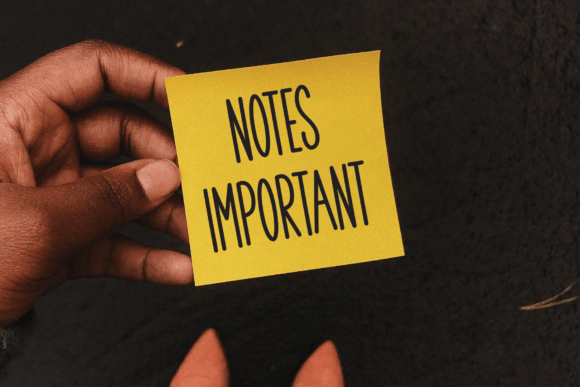 NOTES
IMPORTANT